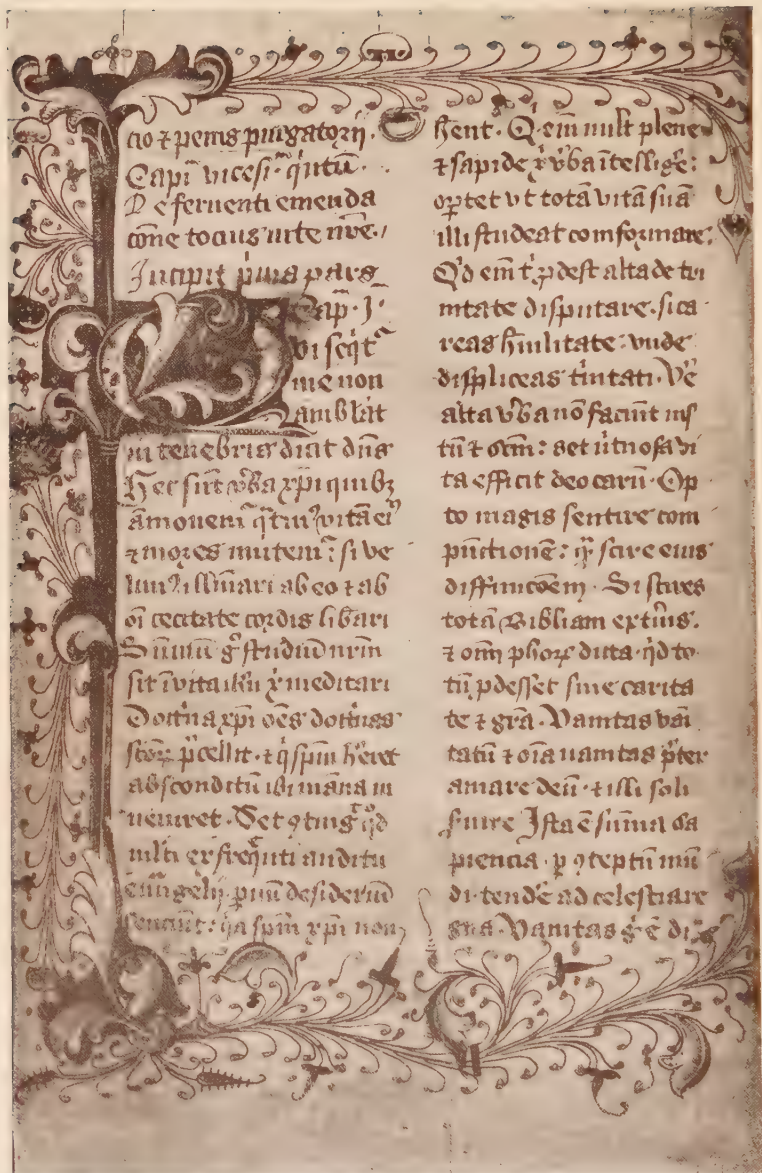 cio ⁊ penis purgatorij.
Capim vicesi. qͥntū.
De feruenti emenda
cōne tocius uite nr̄e.
Incipit p̓ma pars
Cap. J.
Qvi seqͥt᷑
me non
ambl̄at
in tenebris dicit dn̄s
Hec sūt v̓ba xp̄i quibꝫ
āmonem᷑ qͣtin᷒ vitā ei᷒
⁊ mores imitem᷑: si ve
lim᷒ illūīari ab eo ⁊ ab
oī cecitate cordis lib̓ari
Sūmū gͦ studiū nr̄m
sit ī vita ih̄u x̄ meditari
Doct̓na xp̄i oēs doct̓nas
sc̄oꝝ p̓cellit. ⁊ qͥ sp̄m h̄eret
absconditū ibi māna in
ueniret. Set ꝯting᷑ qd̓
ml̄ti ex freqn̄ti auditu
ewāgelij. ꝑuū desideriū
senciūt: qͥa sp̄m xp̄i non
hēnt. Qͥ em̄ vult plene
⁊ sapide x̄ v̓ba ītellig̓e:
oꝑtet vt totā vitā suā
illi studeat comformare.
Qͥd em̄ t̓ ꝓdest alta de tri
nitate disputare. si ca
reas hūilitate. vnde
displiceas t̓nitati. Ve̓
alta v̓ba nō faciūt ius
tū ⁊ sc̄m: set v̓tuosa vi
ta efficit deo carū. Op
to magis sentire com
pūctionē: qͣ scire eius
diffinicōem. Si scires
totā Bibliam ext̓ius.
⁊ oīm ph̄oꝝ dicta. qͥd to
tū ꝓdesset sine carita
te ⁊ gr̄a. Vanitas vāi
tatū ⁊ oīa uanitas p̓ter
amare deū. ⁊ illi soli
s̓uire Ista ē sūma sa
piencia. ꝑ ꝯteptū mū
di. tend̓e ad celestia re
gna. Vanitas gͦ ē di